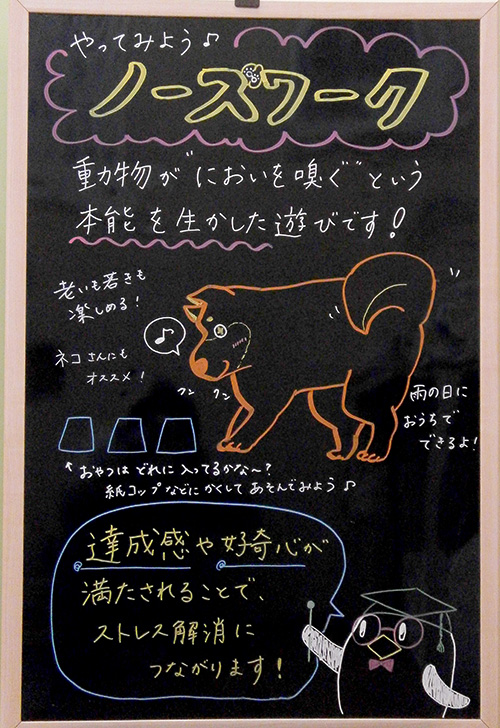 やってみよう♪
ノーズワーク
動物が"においを嗅ぐ"という
本能を生かした遊びです!
老いも若きも
楽しめる!
♪
ネコさんにも
オススメ!
クン クン
雨の日に
おうちで
できるよ!
↑おやつはどれに入ってるかな〜?
紙コップなどにかくしてあそんでみよう♪
達成感や好奇心が
満たされることで、
ストレス解消に
つながります!